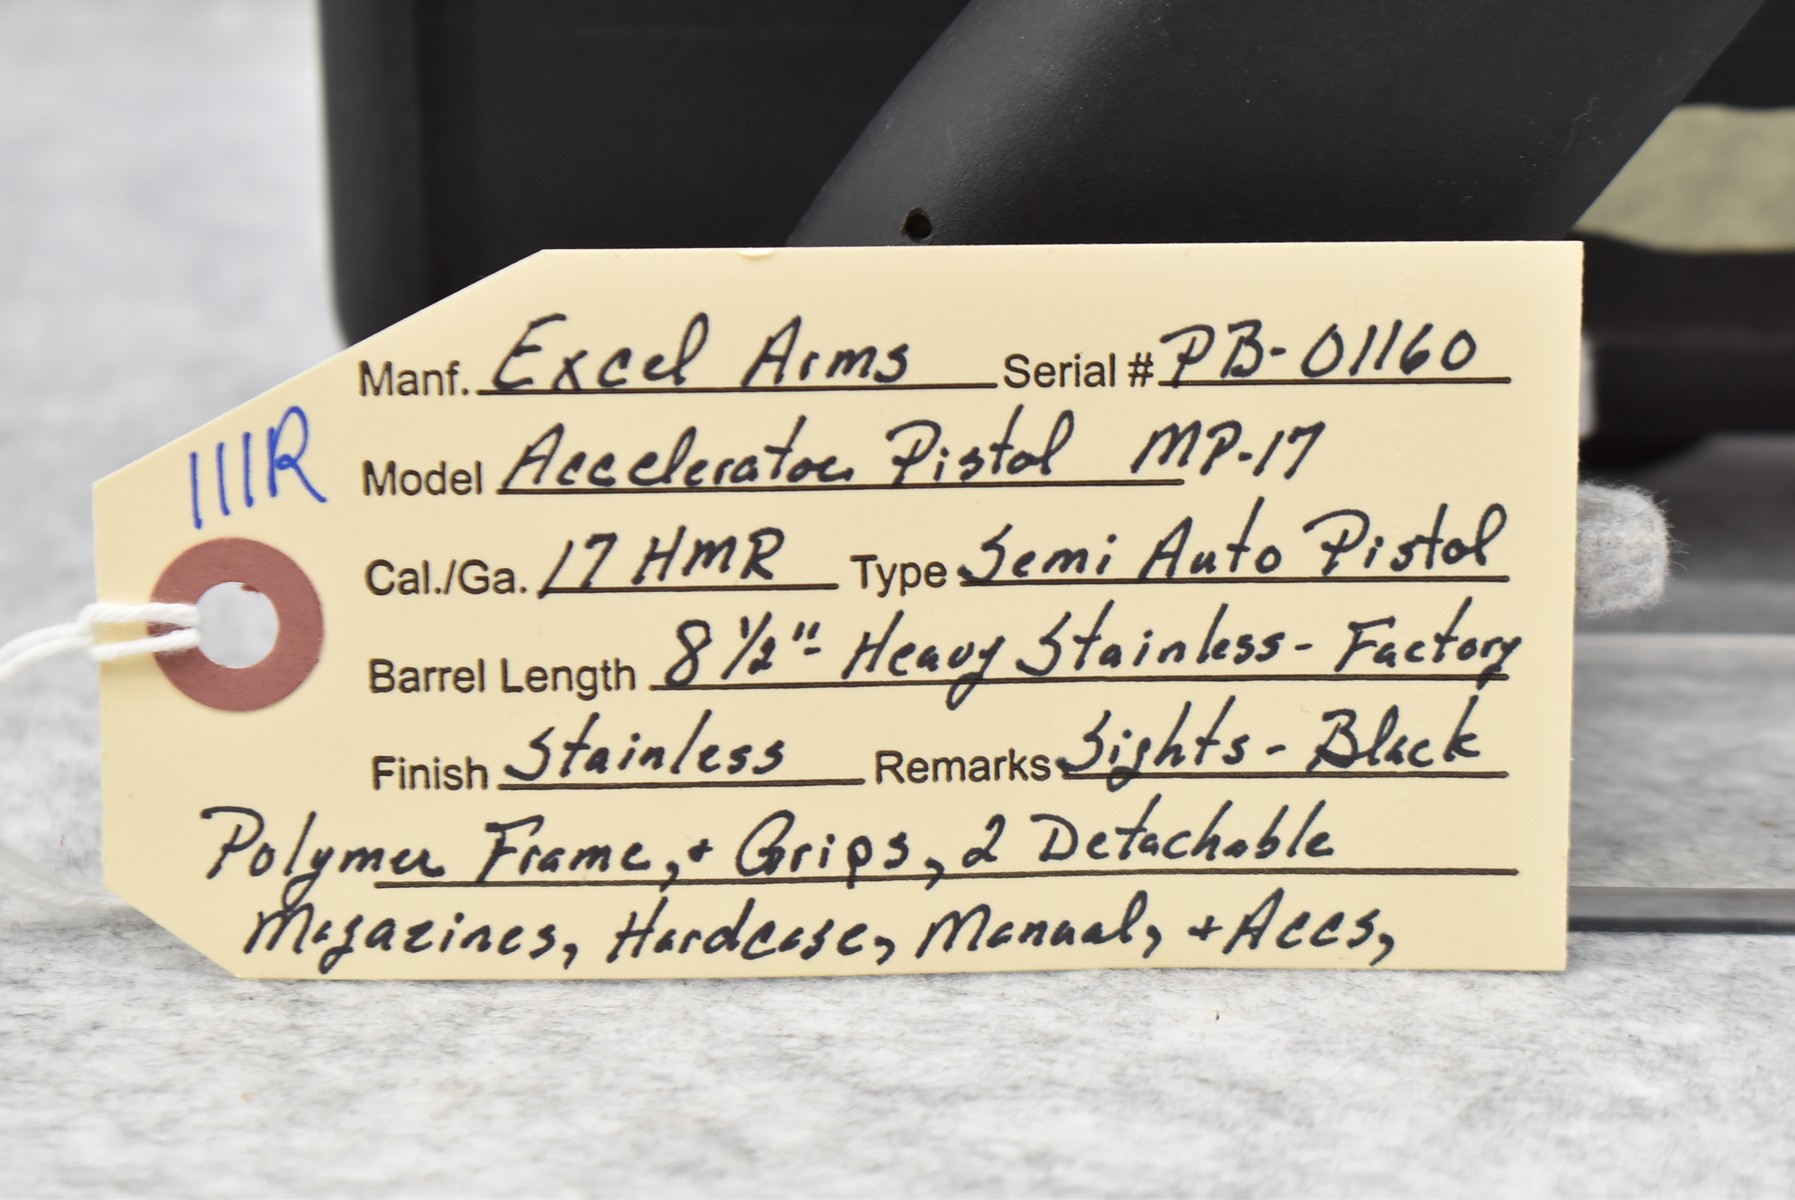 Manf. Excel Arms Serial # PB-01160
111R
Model Accelerator Pistol MP-17
Cal./Ga. 17 HMR Type Semi Auto Pistol
Barrel Length 8 1/2"- Heavy Stainless - Factory
Finish Stainless Remarks Sights - Black
Polymer Frame, + Grips, 2 Detachable
Magazines, Hardcase, Manual, + Accs,